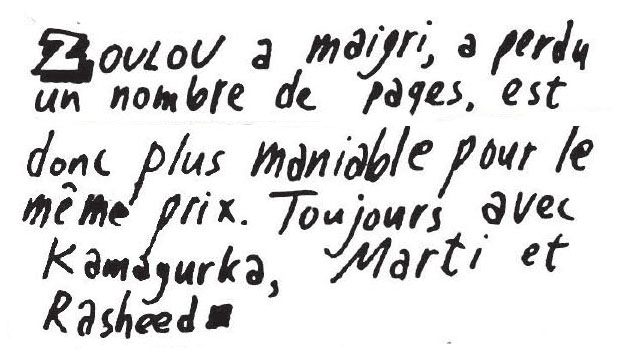 ZOULOU a maigri, a perdu
un nombre de pages, est
donc plus maniable pour le
même prix. Toujours avec
Kamagurka, Marti et
Rasheed